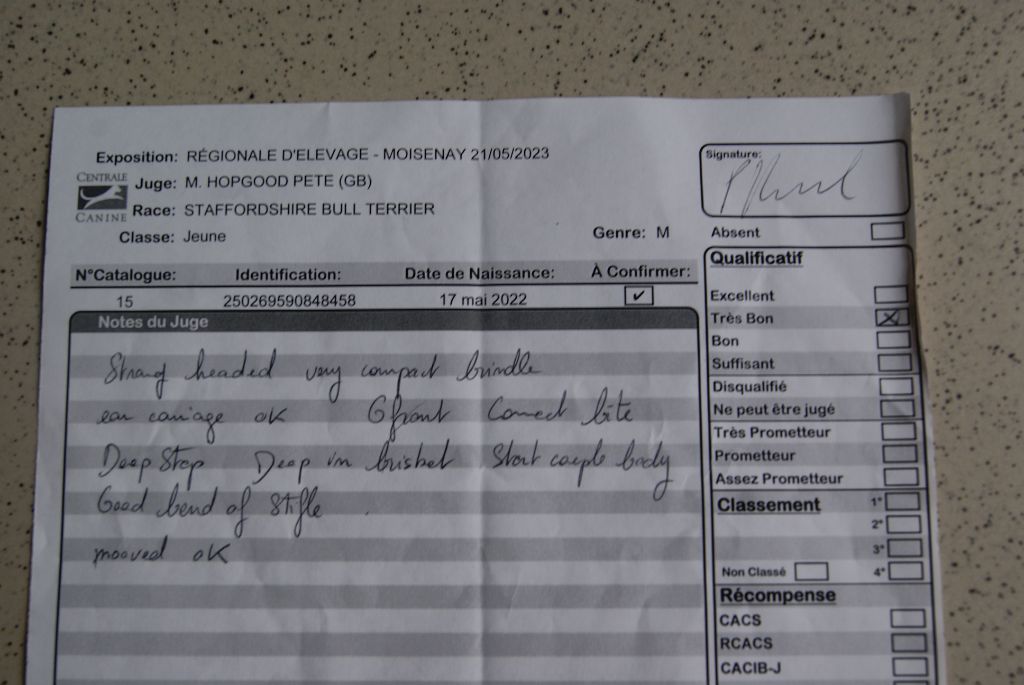 Exposition: RÉGIONALE D'ELEVAGE - MOISENAY 21/05/2023
CENTRALE CANINE
Juge: M. HOPGOOD PETE (GB)
Race: STAFFORDSHIRE BULL TERRIER
Classe: Jeune Genre: M
N°Catalogue: Identification: Date de Naissance: À Confirmer:
15 250269590848458 17 mai 2022 ✔
Notes du Juge
Strong headed very compact brindle
ear carriage ok G front Correct bite
Deep Stop Deep in brisket Short couple body
Good bend of Stifle .
mooved oK
Signature:
Absent
Qualificatif
Excellent
Très Bon X
Bon
Suffisant
Disqualifié
Ne peut être jugé
Très Prometteur
Prometteur
Assez Prometteur
Classement 1°
2°
3°
Non Classé 4°
Récompense
CACS
RCACS
CACIB-J